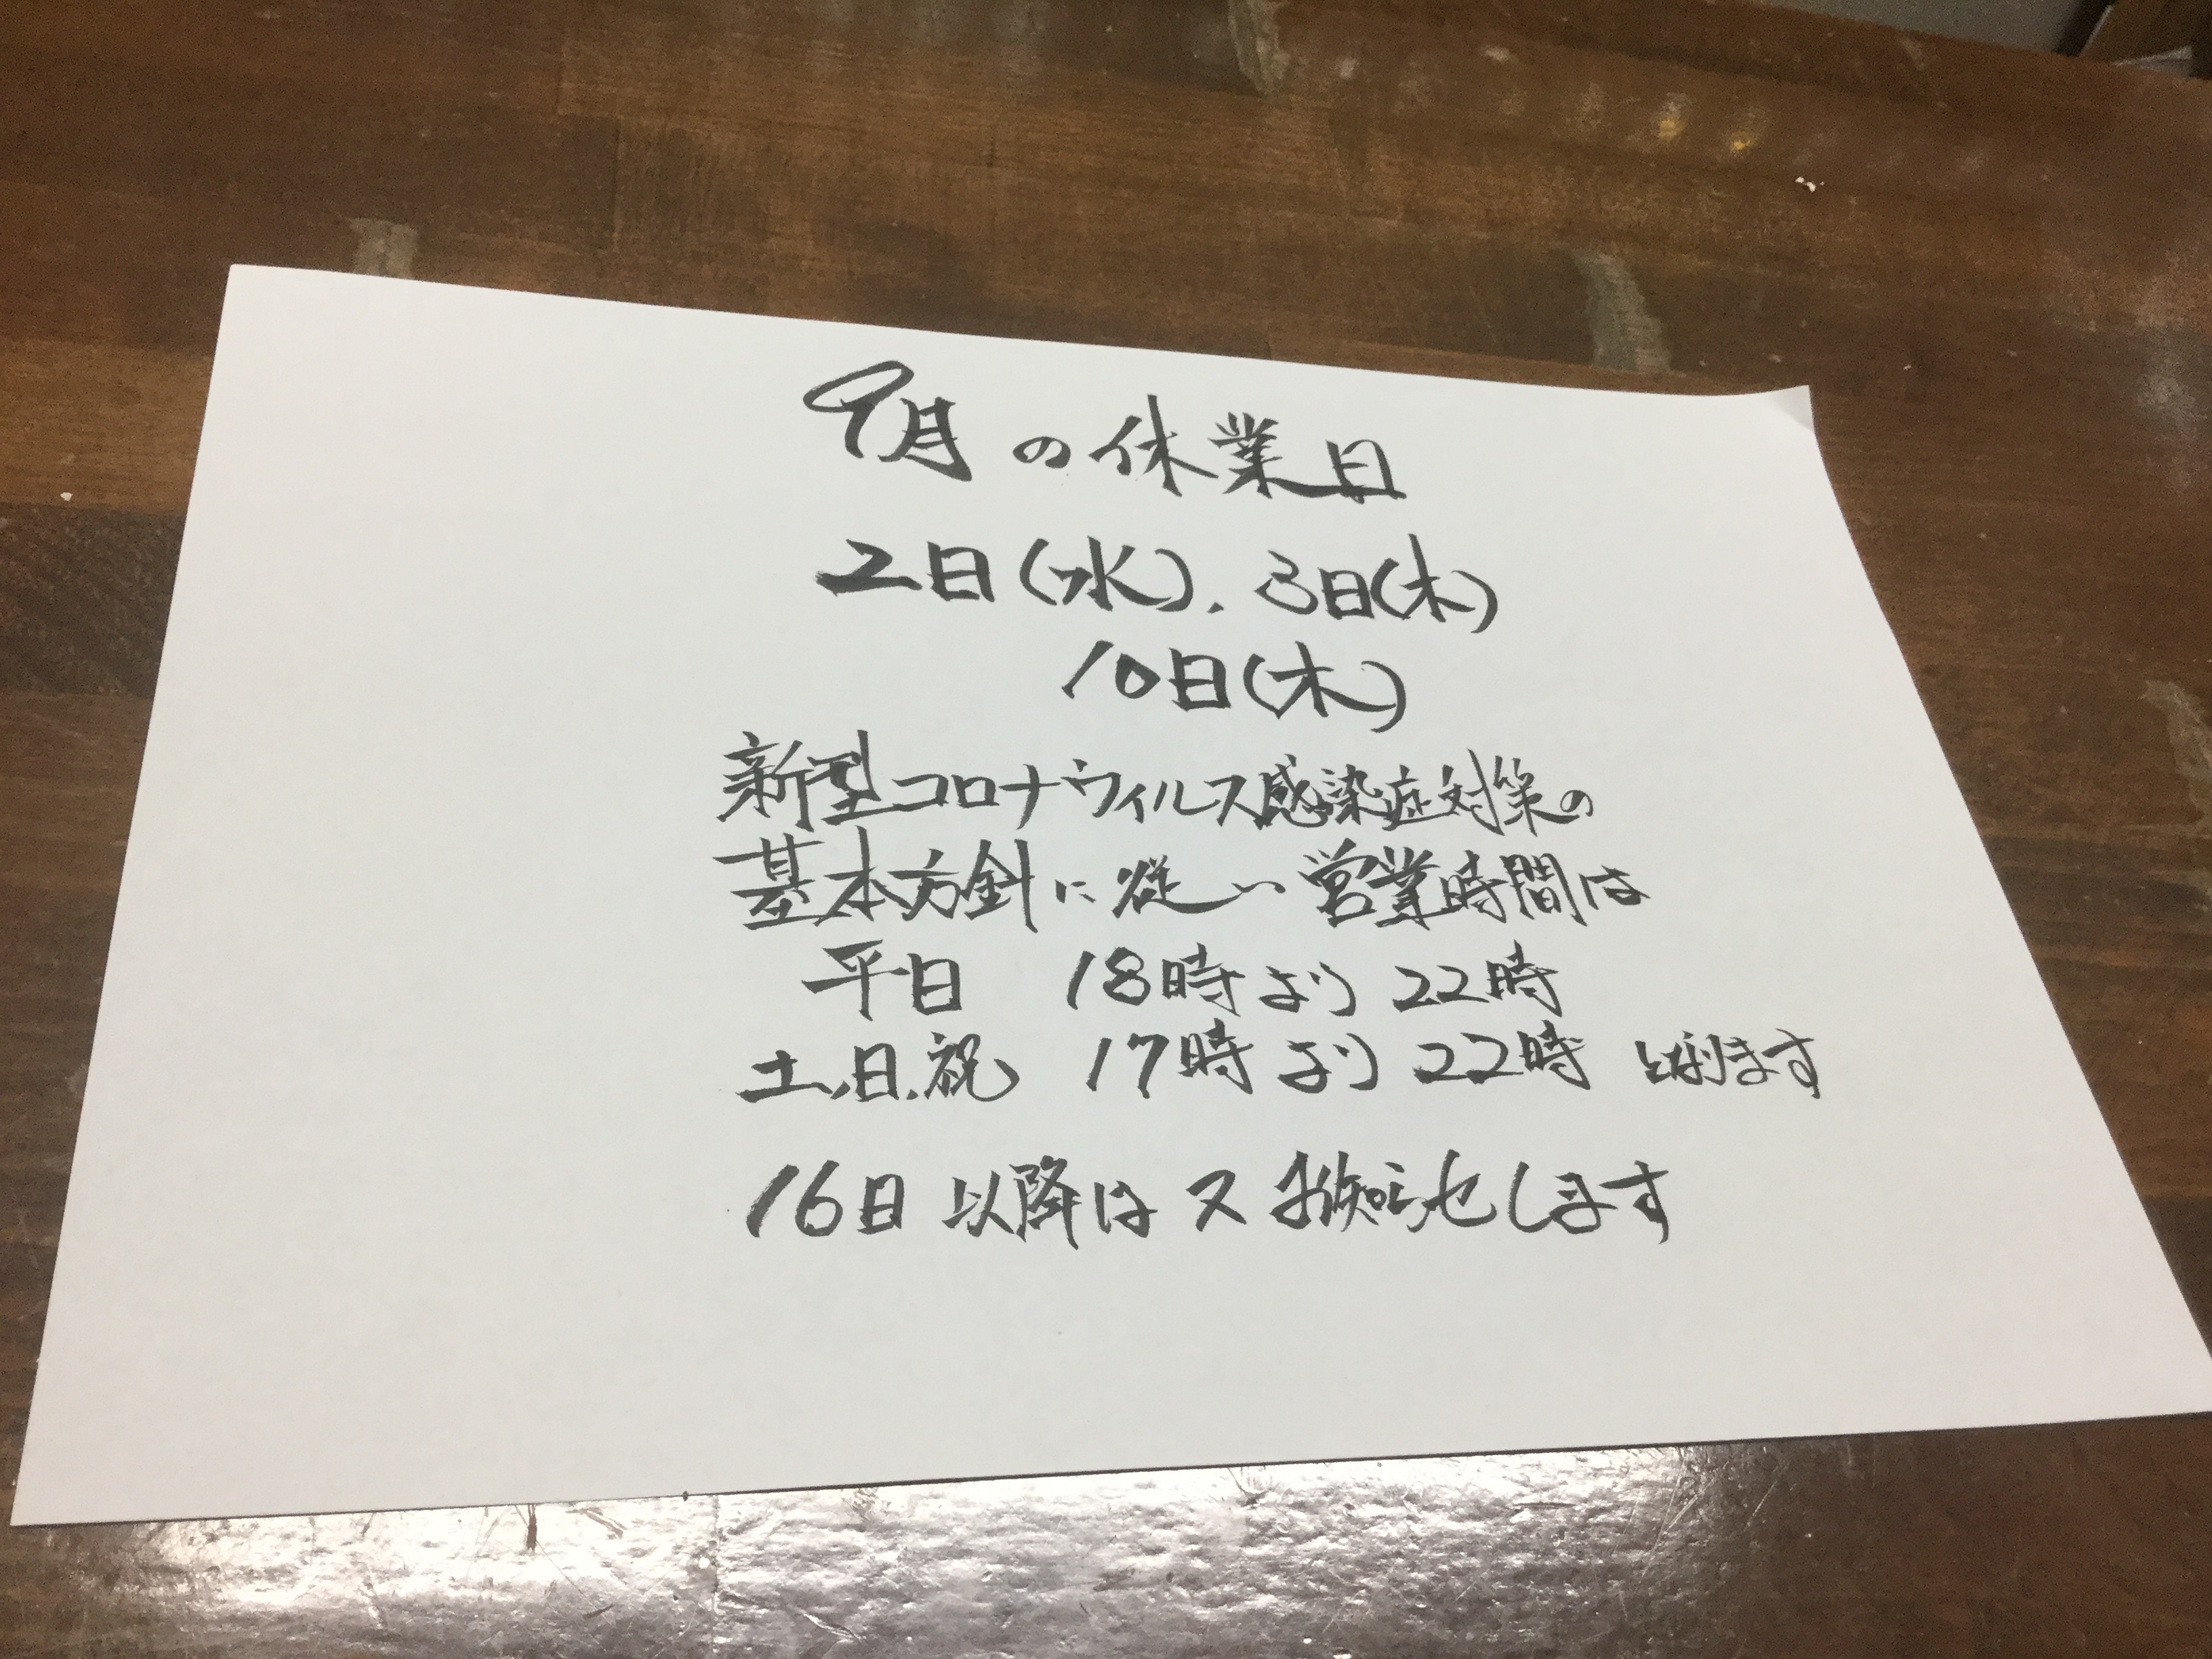 9月の休業日
2日(水)、3日(木)
10日(木)
新型コロナウィルス感染症対策の
基本方針に従い営業時間は
平日 18時より22時
土、日、祝 17時より22時 と成ります
16日以降は又お知らせします